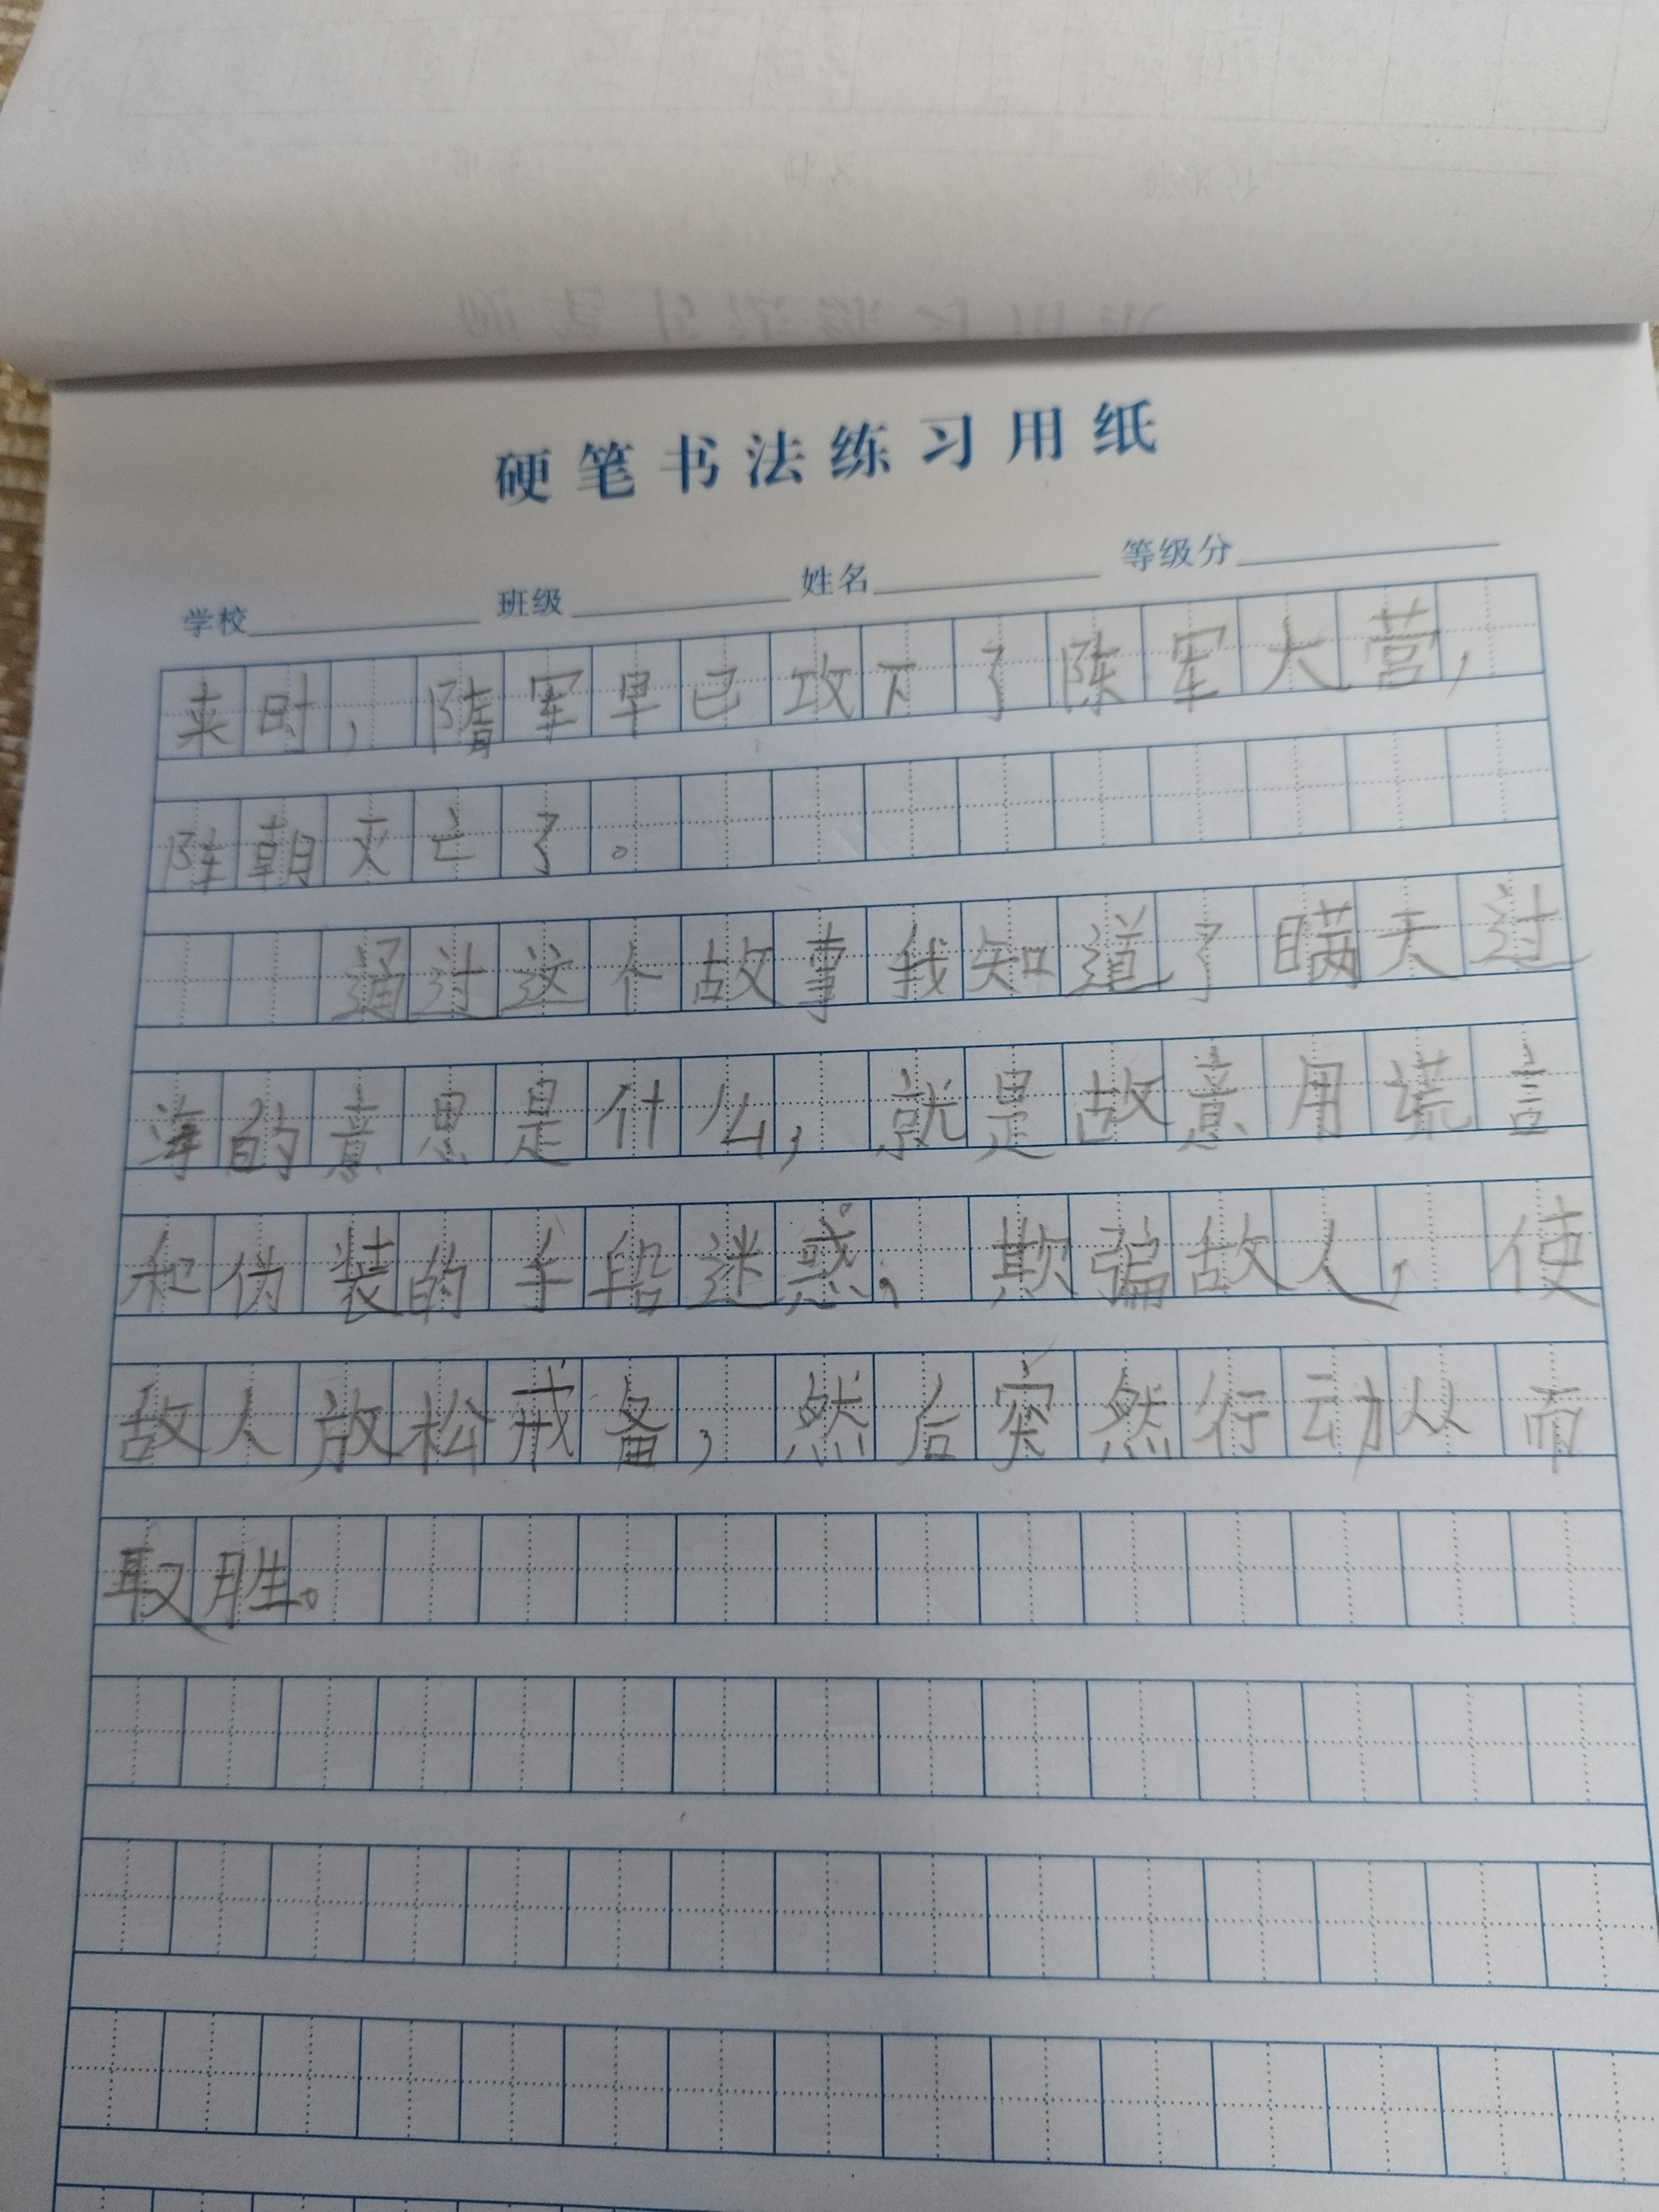 硬笔书法练习用纸
学校 班级 姓名 等级分
来时，隋军早已攻下了陈军大营，
陈朝灭亡了。
通过这个故事我知道了瞒天过
海的意思是什么，就是故意用谎言
和伪装的手段迷惑，欺骗敌人，使
敌人放松戒备，然后突然行动从而
取胜。